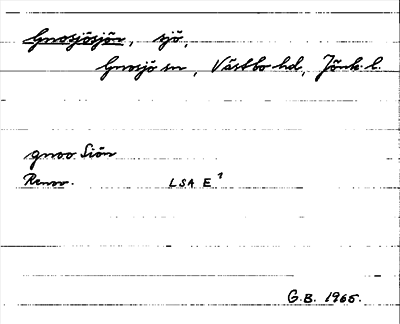 Gnosjösjön, sjö,
Gnosjö sn, Västbo hd, Jönk. l.
gnoo Siön
Renov. LSA E¹
G.B. 1965.